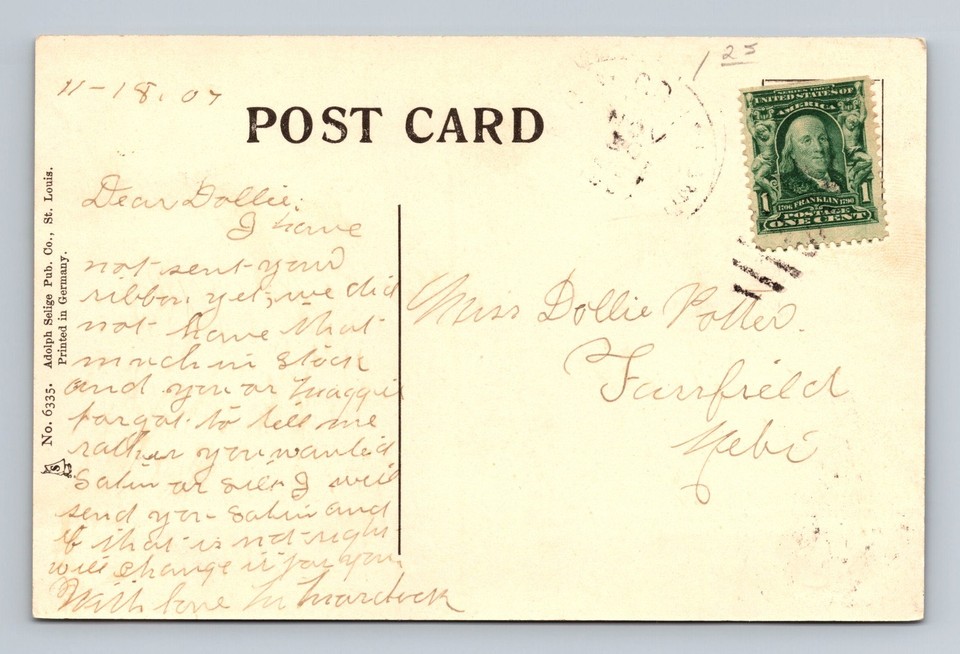 11-18.07
1 25
POST CARD
SERIES 1902
UNITED STATES OF
AMERICA
1 1
1706 FRANKLIN 1790
POSTAGE
ONE CENT
No. 6335. Adolph Selige Pub. Co., St. Louis.
Printed in Germany.
S
Dear Dollie.
I have
not sent your
ribbon yet, we did
not have that
much in stock
and you or Maggie
forgot to tell me
rather you wanted
Satin or silk I will
send you Satin and
if that is not right
will change it for you
With love M Murdock
Miss Dollie Potter.
Fairfield
Nebr